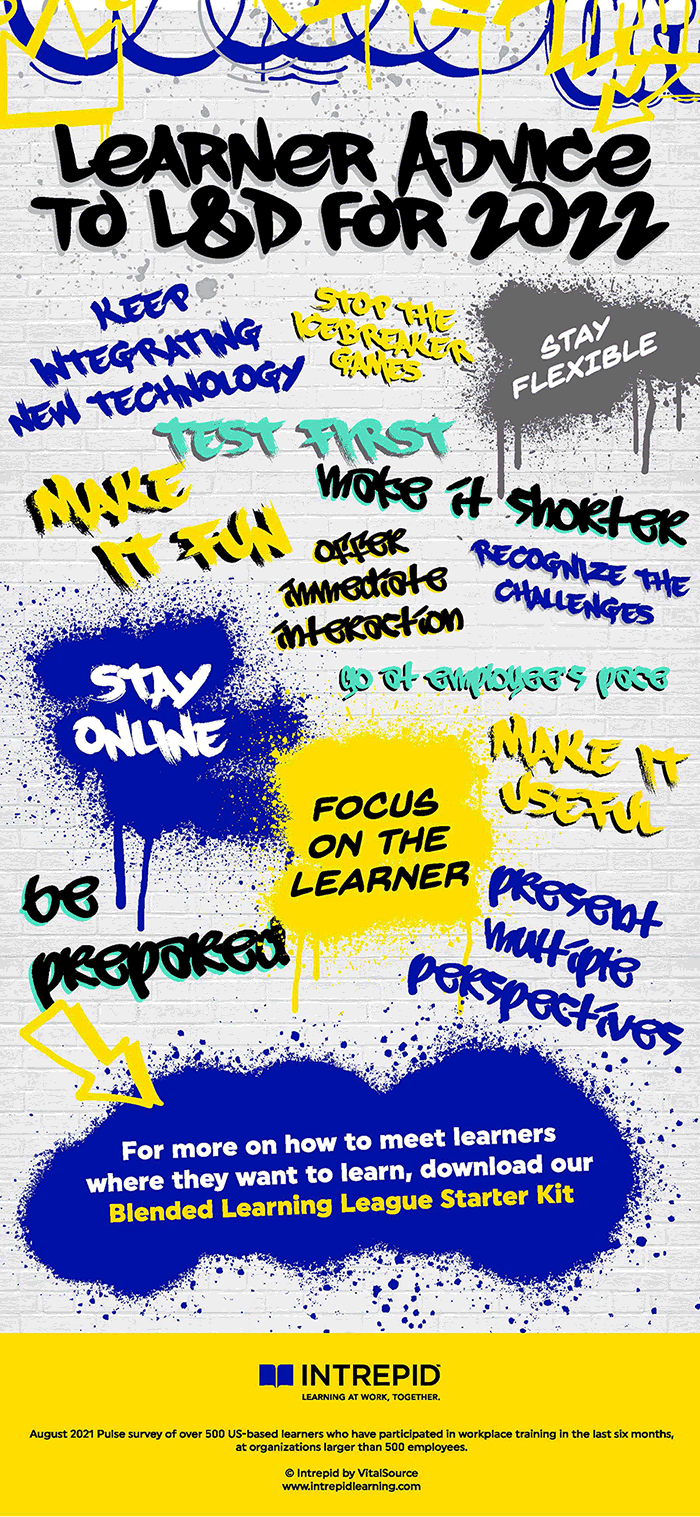 LEARNER ADVICE
TO L&D FOR 2022
KEEP
INTEGRATING
NEW TECHNOLOGY
STOP THE
ICEBREAKER
GAMES
STAY
FLEXIBLE
TEST FIRST
MAKE
IT FUN
make it shorter
offer
immediate
interaction
RECOGNIZE THE
CHALLENGES
go at employee's pace
STAY
ONLINE
MAKE IT
USEFUL
FOCUS
ON THE
LEARNER
be
prepared
present
multiple
perspectives
For more on how to meet learners
where they want to learn, download our
Blended Learning League Starter Kit
INTREPID™
LEARNING AT WORK, TOGETHER.
August 2021 Pulse survey of over 500 US-based learners who have participated in workplace training in the last six months,
at organizations larger than 500 employees.
© Intrepid by VitalSource
www.intrepidlearning.com